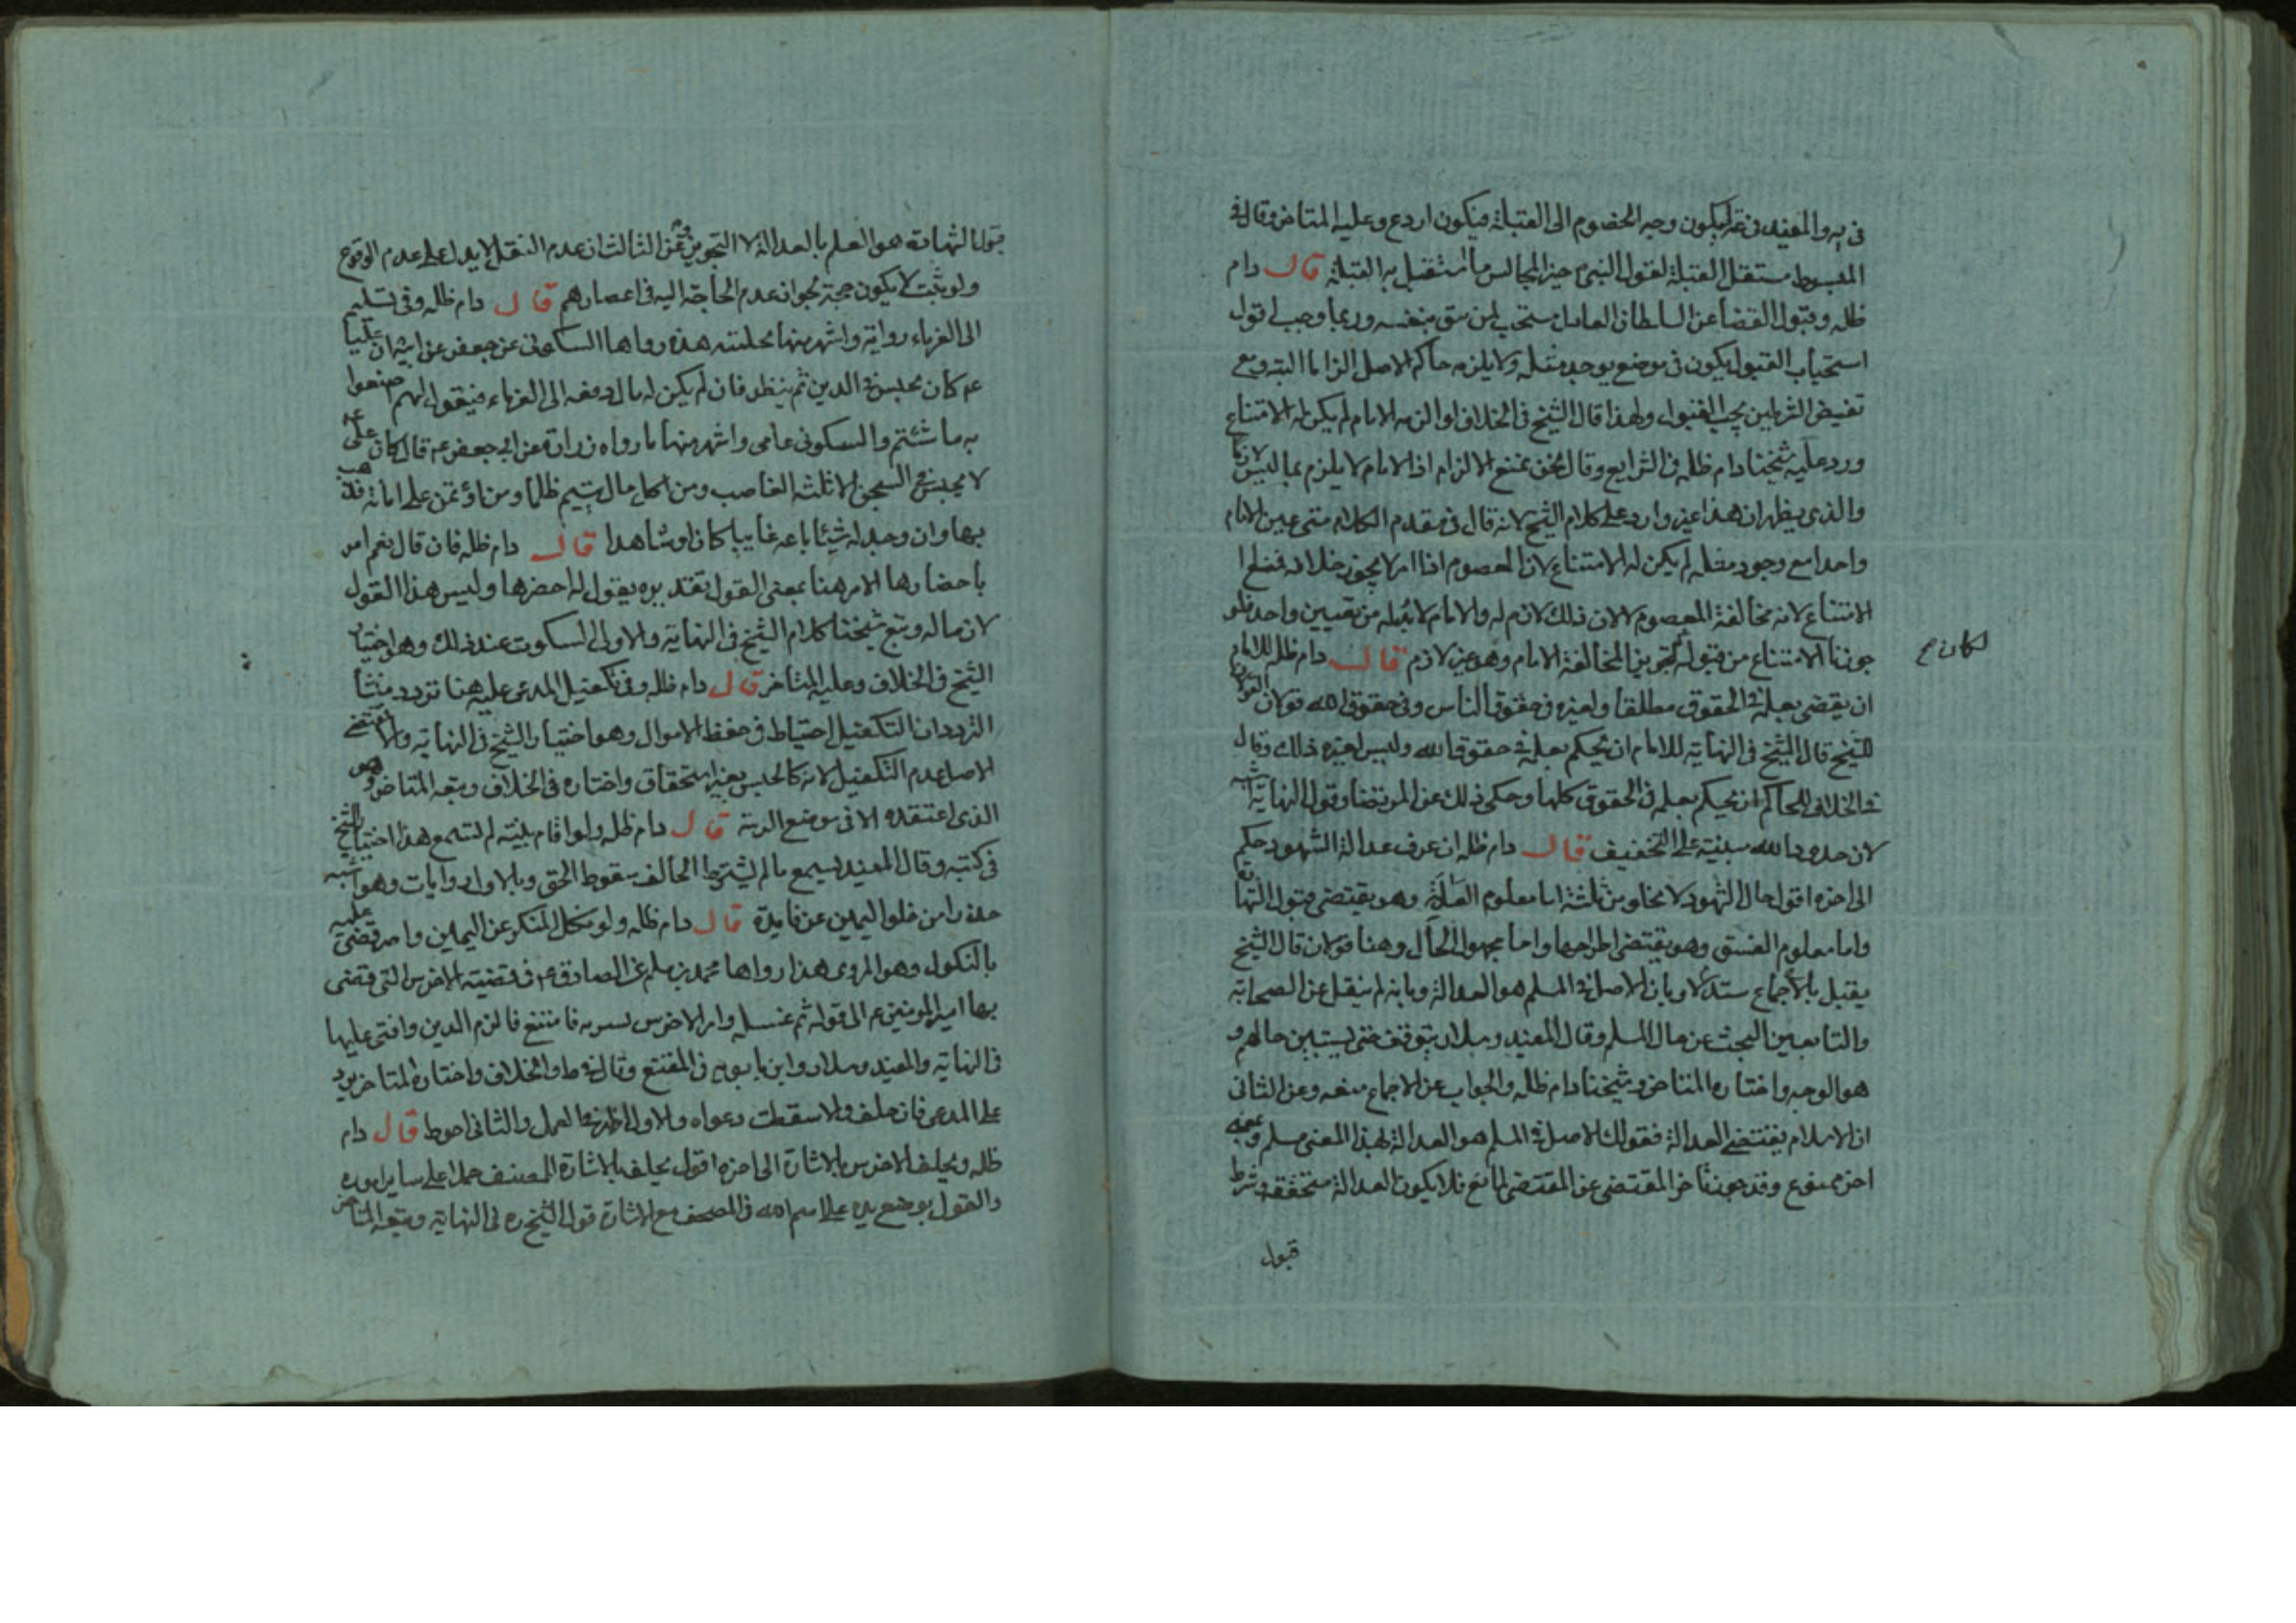 في يه والمفيد في عه ليكون وجه الخصوم الى القبلة فيكون اردع وعليه المتاخر وقال في
المبسوط مستقبل القبلة لقول النبي خير المجالس ما استقبل به القبلة قال دام
ظله وقبول القضا عن السلطان العادل مستحب لمن يثق بنفسه وربما وجب اقول
استحباب القبول يكون في موضع يوجد مثله ولا يلزمه حاكم الاصل الزاما البته ومع
الشرطين يجب القبول ولهذا قال الشيخ في الخلاف لو الزمه الامام لم يكن له الامتناع
ورد عليه شيخنا دام ظله في الشرايع وقال نحن نمنع الالزام اذ الامام لا يلزم بما ليس لازما
والذي يظهر ان هذا غير وارد على كلام الشيخ لانه قال في مقدم الكلام متى عين الامام
واحدا مع وجود مثله لم يكن له الامتناع لان المعصوم اذا امر لا يجوز خلافه فمنع
الامتناع لانه مخالفة المعصوم لا لان ذلك لازم له والامام لا بد له من تعيين واحد فلو
جوزنا الامتناع من قبوله لكان تجويز المخالفة الامام وهو غير لازم قال دام ظله للامام
ان يقضي بعلمه في الحقوق مطلقا ولغيره في حقوق الناس وفي حقوق الله قولان القولان
للشيخ قال الشيخ في النهاية للامام ان يحكم بعلمه في حقوق الله وليس لغيره ذلك وقال
في الخلاف للحاكم ان يحكم بعلمه في الحقوق كلها وحكى ذلك عن المرتضى وقول النهاية اشبه
لان حدود الله مبنية على التخفيف قال دام ظله ان عرف عدالة الشهود حكم
الى اخره اقول حال الشهود لا يخلو من ثلثة اما معلوم العدالة وهو يقتضي قبول الشهادة
واما معلوم الفسق وهو يقتضي اطراحها واما مجهول الحال وهنا قولان قال الشيخ
يقبل بالاجماع مستدلا وبان الاصل في المسلم هو العدالة وبانه لم ينقل عن الصحابة
والتابعين البحث عن حال المسلم وقال المفيد وسلار يتوقف حتى يستبين حالهم و
هو الوجه واختاره المتاخر وشيخنا دام ظله والجواب عن الاجماع منعه وعن الثاني
ان الاسلام يقتضي العدالة فقولك الاصل في المسلم هو العدالة بهذا المعنى مسلم وبمعنى
اخر ممنوع وقد جوزنا تاخر المقتضى عن المقتضي لمانع فلا يكون العدالة متحققة وشرط
قبول
لكان ع
قبول الشهادة هو العلم بالعدالة لا التجويز وعن الثالث ان عدم النقل لا يدل على عدم الوقوع
ولو ثبت لا يكون حجة لجواز عدم الحاجة اليه في اعصارهم قال دام ظله وفي تسليم
الى الغرماء رواية واشهر منها تخليته هذه رواها السكوني عن جعفر عن ابيه ان عليا
عم كان يحبس في الدين ثم ينظر فان لم يكن له مال دفعه الى الغرماء فيقول لهم اصنعوا
به ما شئتم والسكوني عامي واشهر منها ما رواه زرارة عن ابي جعفر عم قال كان علي عم
لا يحبس في السجن الا ثلثة الغاصب ومن اكل مال يتيم ظلما ومن اؤتمن على امانة فذهب
بها وان وجد له شيئا باعه غايبا كان او شاهدا قال دام ظله فان قال نعم امر
باحضارها الامر هنا بمعنى القول تقديره يقول له احضرها وليس هذا القول
لازما له وتبع شيخنا كلام الشيخ في النهاية والاولى السكوت عند ذلك وهو اختيار
الشيخ في الخلاف وعليه المتاخر قال دام ظله وفي تكفيل المدعى عليه هنا تردد منشا
التردد ان التكفيل احتياط في حفظ الاموال وهو اختيار الشيخ في النهاية ولان مقتضى
الاصل عدم التكفيل لانه كالحبس بغير استحقاق واختاره في الخلاف وتبعه المتاخر وهو
الذي اعتقده الا في موضع الريبة قال دام ظله ولو اقام بينة لم تسمع هذا اختيار الشيخ
في كتبه وقال المفيد يسمع ما لم يشترط الحالف سقوط الحق وبالاول روايات وهو اشبه
حذرا من خلو اليمين عن فايدة قال دام ظله ولو نكل المنكر عن اليمين واصر قضى عليه
بالنكول وهو المروي هذا رواها محمد بن مسلم عن الصادق عم في قضية الاخرس التي قضى
بها امير المومنين عم الى قوله ثم غسله وامر الاخرس بشربه فامتنع فالزم الدين وافتى عليها
في النهاية والمفيد وسلار وابن بابويه في المقنع وقال في ط والخلاف واختاره المتاخر يرد
على المدعي فان حلف والا سقطت دعواه والاول اظهر في العمل والثاني احوط قال دام
ظله ويحلف الاخرس بالاشارة الى اخره اقول يحلف بالاشارة المصنف حملا على ساير اموره
والقول بوضع يده على اسم الله في المصحف مع الاشارة قول الشيخ ره في النهاية وتبعه المتاخر